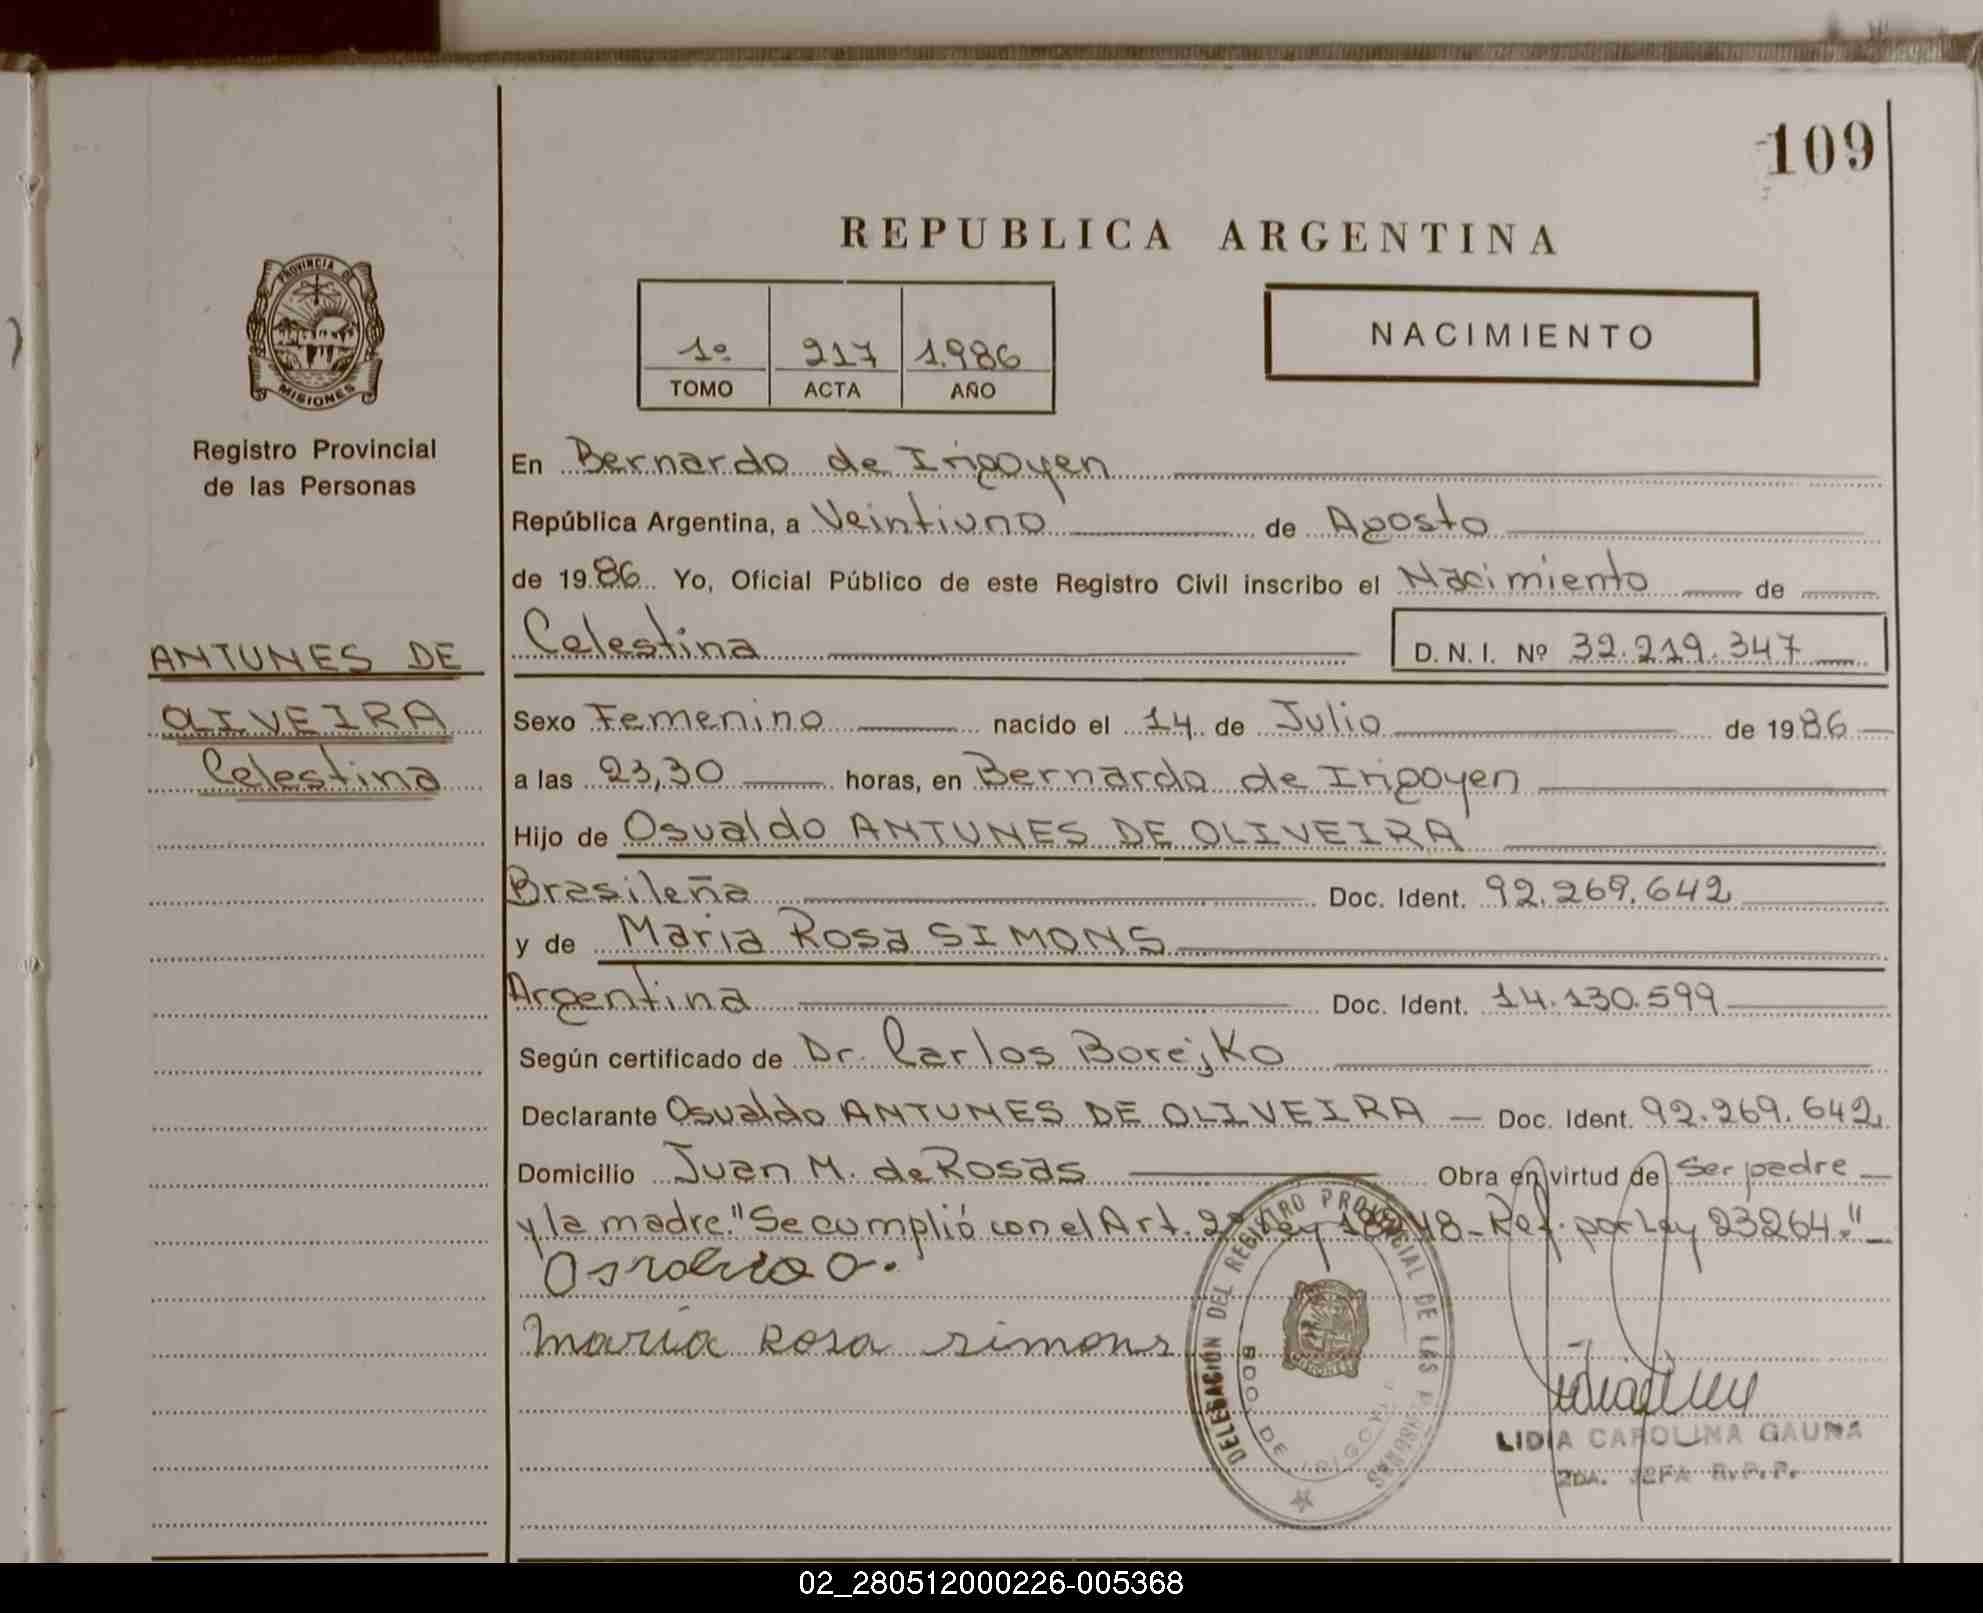 109
REPUBLICA ARGENTINA
PROVINCIA DE
MISIONES
Registro Provincial
de las Personas
1º 217 1.986
TOMO ACTA AÑO
NACIMIENTO
En Bernardo de Irigoyen
República Argentina, a Veintiuno de Agosto
de 1986 Yo, Oficial Público de este Registro Civil inscribo el Nacimiento de
Celestina D. N. I. Nº 32.219.347
ANTUNES DE
OLIVEIRA
Celestina
Sexo Femenino nacido el 14 de Julio de 1986
a las 23,30 horas, en Bernardo de Irigoyen
Hijo de Osvaldo ANTUNES DE OLIVEIRA
Brasileña Doc. Ident. 92.269.642
y de Maria Rosa SIMONS
Argentina Doc. Ident. 14.130.599
Según certificado de Dr. Carlos Borejko
Declarante Osvaldo ANTUNES DE OLIVEIRA — Doc. Ident. 92.269.642
Domicilio Juan M. de Rosas Obra en virtud de Ser padre
y la madre. "Se cumplió con el Art. 2º Ley 18248- Ref. por Ley 23264."
maria Rosa simons
DELEGACION DEL REGISTRO PROVINCIAL DE LAS PERSONAS
BDO DE IRIGOYEN
LIDIA CAROLINA GAUNA
2DA. JEFA R.P.P.
02_280512000226-005368